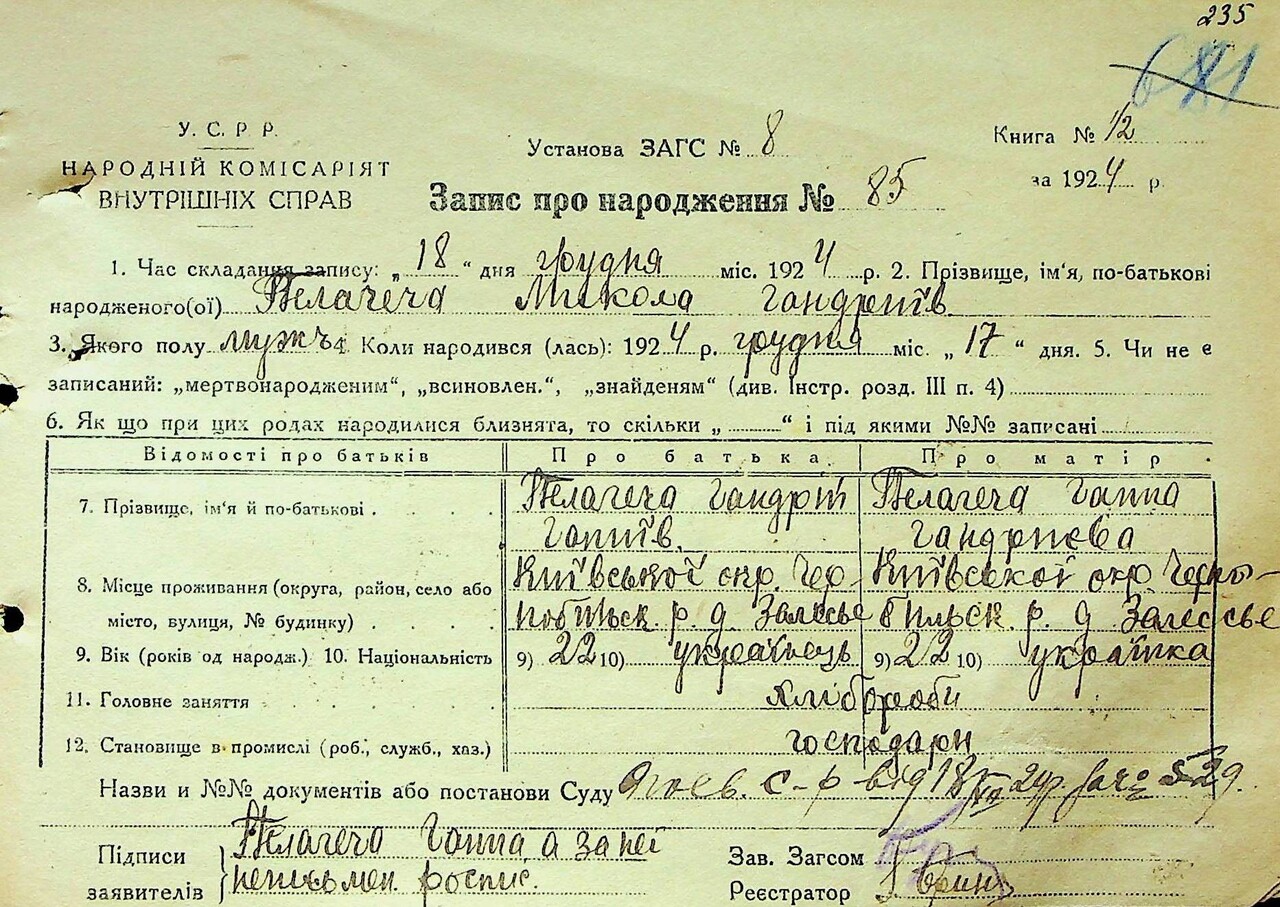 235
У. С. Р. Р.
НАРОДНІЙ КОМІСАРІЯТ
ВНУТРІШНІХ СПРАВ
Установа ЗАГС № 8
Книга № 12
за 1924 р.
Запис про народження № 85
1. Час складання запису: „18“ дня грудня міс. 1924 р. 2. Прізвище, ім'я, по-батькові
народженого(ої) Пелагеча Микола Гандріїв
3. Якого полу мужч 4. Коли народився (лась): 1924 р. грудня міс. „17“ дня. 5. Чи не є
записаний: „мертвонародженим“, „всиновлен.“, „знайденям“ (див. Інстр. розд. III п. 4)
6. Як що при цих родах народилися близнята, то скільки „ “ і під якими №№ записані
Відомості про батьків Про батька Про матір
7. Прізвище, ім'я й по-батькові Пелагеча Гандрій Пелагеча Ганна
Гандрієва
8. Місце проживання (округа, район, село або Київської окр. Чер- Київської окр. Черно-
місто, вулиця, № будинку) нобильск. р. д. Залесье бильск. р. д. Залесье
9. Вік (років од народж.) 10. Національність 9) 22 10) українець 9) 22 10) українка
11. Головне заняття хлібороби
12. Становище в промислі (роб., служб., хаз.) господарі
Назви и №№ документів або постанови Суду С-р від 18/XII 24р. за № 529.
Підписи заявителів Пелагеча Ганна а за неї
неписьмен. роспис.
Зав. Загсом
Реєстратор